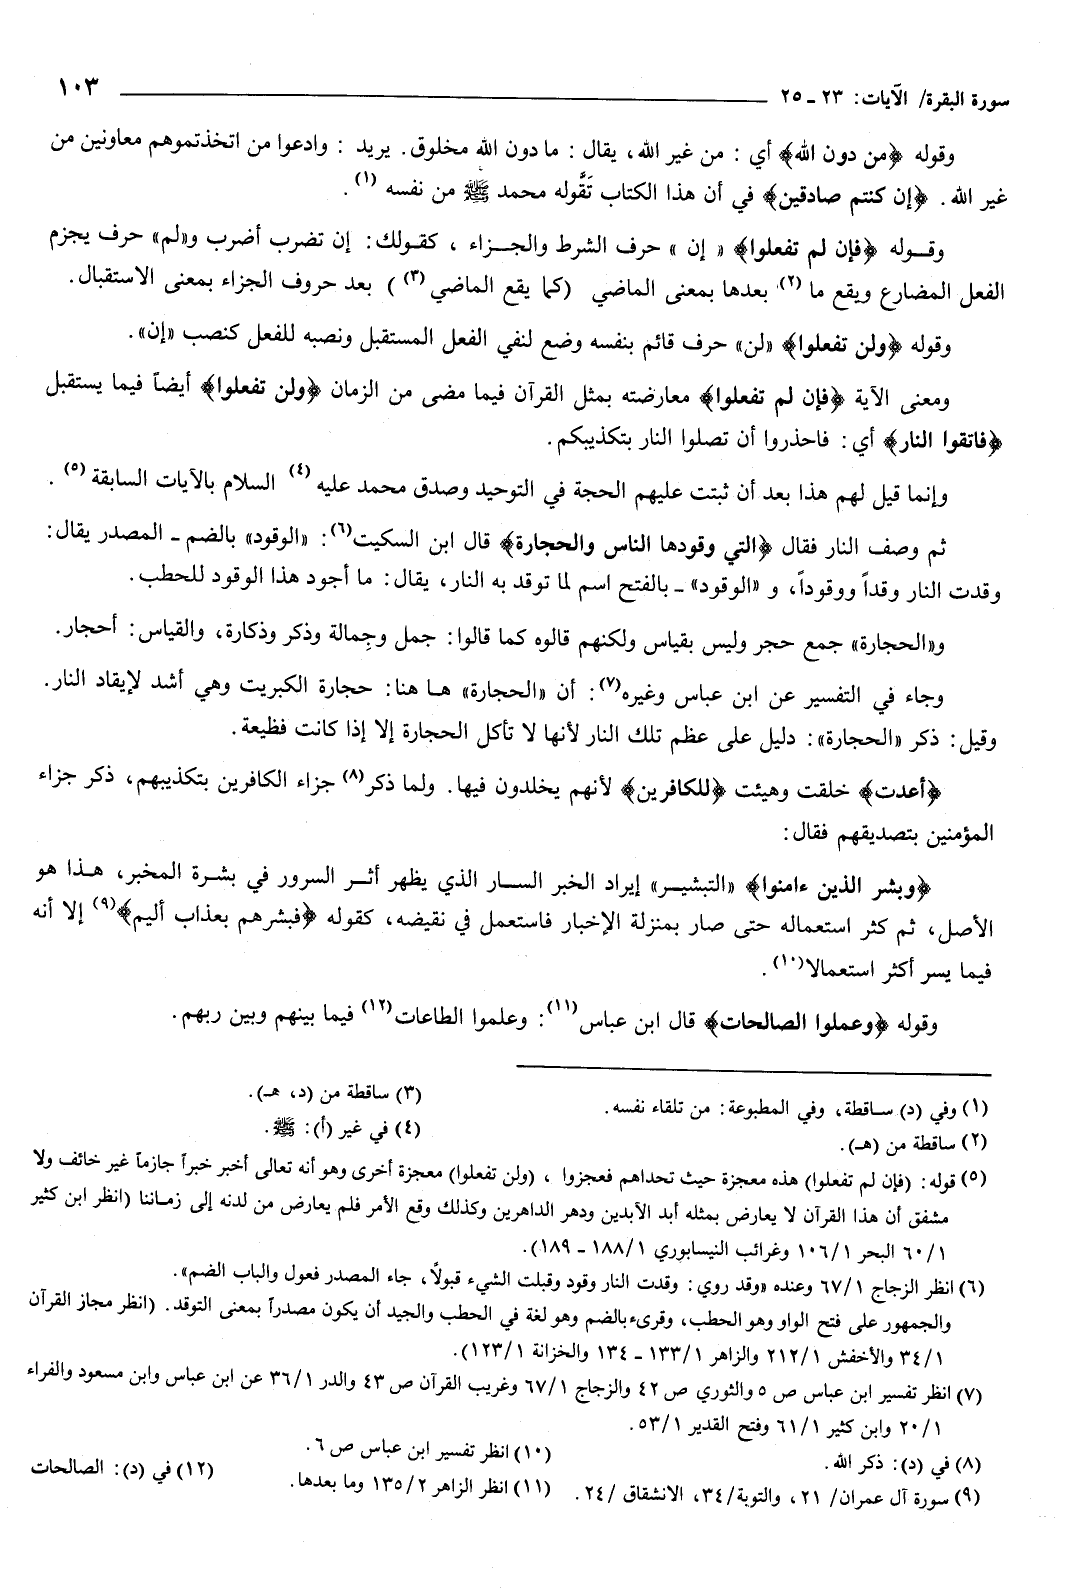 سورة البقرة/ الآيات: ٢٣ ـ ٢٥ ١٠٣
وقوله ﴿من دون الله﴾ أي : من غير الله، يقال : ما دون الله مخلوق. يريد : وادعوا من اتخذتموهم معاونين من
غير الله. ﴿إن كنتم صادقين﴾ في أن هذا الكتاب تَقَّوله محمد ﷺ من نفسه (١) .
وقوله ﴿فإن لم تفعلوا﴾ « إن » حرف الشرط والجزاء ، كقولك: إن تضرب أضرب و«لم» حرف يجزم
الفعل المضارع ويقع ما (٢) بعدها بمعنى الماضي (كما يقع الماضي (٣) ) بعد حروف الجزاء بمعنى الاستقبال.
وقوله ﴿ولن تفعلوا﴾ «لن» حرف قائم بنفسه وضع لنفي الفعل المستقبل ونصبه للفعل كنصب «إن».
ومعنى الآية ﴿فإن لم تفعلوا﴾ معارضته بمثل القرآن فيما مضى من الزمان ﴿ولن تفعلوا﴾ أيضاً فيما يستقبل
﴿فاتقوا النار﴾ أي: فاحذروا أن تصلوا النار بتكذيبكم.
وإنما قيل لهم هذا بعد أن ثبتت عليهم الحجة في التوحيد وصدق محمد عليه (٤) السلام بالآيات السابقة (٥) .
ثم وصف النار فقال ﴿التي وقودها الناس والحجارة﴾ قال ابن السكيت(٦): «الوقود» بالضم ـ المصدر يقال:
وقدت النار وقداً ووقوداً، و «الوقود» ـ بالفتح اسم لما توقد به النار، يقال: ما أجود هذا الوقود للحطب.
و«الحجارة» جمع حجر وليس بقياس ولكنهم قالوه كما قالوا: جمل وجِمالة وذكر وذكارة، والقياس: أحجار.
وجاء في التفسير عن ابن عباس وغيره(٧): أن «الحجارة» ها هنا: حجارة الكبريت وهي أشد لإيقاد النار.
وقيل: ذكر «الحجارة»: دليل على عظم تلك النار لأنها لا تأكل الحجارة إلا إذا كانت فظيعة.
﴿أعدت﴾ خلقت وهيئت ﴿للكافرين﴾ لأنهم يخلدون فيها. ولما ذكر(٨) جزاء الكافرين بتكذيبهم، ذكر جزاء
المؤمنين بتصديقهم فقال:
﴿وبشر الذين ءامنوا﴾ «التبشير» إيراد الخبر السار الذي يظهر أثر السرور في بشرة المخبر، هذا هو
الأصل، ثم كثر استعماله حتى صار بمنزلة الإخبار فاستعمل في نقيضه، كقوله ﴿فبشرهم بعذاب أليم﴾(٩) إلا أنه
فيما يسر أكثر استعمالا(١٠) .
وقوله ﴿وعملوا الصالحات﴾ قال ابن عباس(١١): وعلموا الطاعات(١٢) فيما بينهم وبين ربهم.
(١) وفي (د) ساقطة، وفي المطبوعة: من تلقاء نفسه.
(٢) ساقطة من (هـ).
(٣) ساقطة من (د، هـ).
(٤) في غير (أ): ﷺ.
(٥) قوله: (فإن لم تفعلوا) هذه معجزة حيث تحداهم فعجزوا ، (ولن تفعلوا) معجزة أخرى وهو أنه تعالى أخبر خبراً جازماً غير خائف ولا
مشفق أن هذا القرآن لا يعارض بمثله أبد الآبدين ودهر الداهرين وكذلك وقع الأمر فلم يعارض من لدنه إلى زماننا (انظر ابن كثير
١/ ٦٠ البحر ١/ ١٠٦ وغرائب النيسابوري ١/ ١٨٨ ـ ١٨٩).
(٦) انظر الزجاج ١/ ٦٧ وعنده «وقد روي: وقدت النار وقود وقبلت الشيء قبولًا، جاء المصدر فعول والباب الضم».
والجمهور على فتح الواو وهو الحطب، وقرىء بالضم وهو لغة في الحطب والجيد أن يكون مصدراً بمعنى التوقد. (انظر مجاز القرآن
١/ ٣٤ والأخفش ١/ ٢١٢ والزاهر ١/ ١٣٣ ـ ١٣٤ والخزانة ١/ ١٢٣).
(٧) انظر تفسير ابن عباس ص ٥ والثوري ص ٤٢ والزجاج ١/ ٦٧ وغريب القرآن ص ٤٣ والدر ١/ ٣٦ عن ابن عباس وابن مسعود والفراء
١/ ٢٠ وابن كثير ١/ ٦١ وفتح القدير ١/ ٥٣.
(٨) في (د): ذكر الله.
(٩) سورة آل عمران/ ٢١، والتوبة/ ٣٤، الانشقاق / ٢٤.
(١٠) انظر تفسير ابن عباس ص ٦.
(١١) انظر الزاهر ٢/ ١٣٥ وما بعدها.
(١٢) في (د): الصالحات